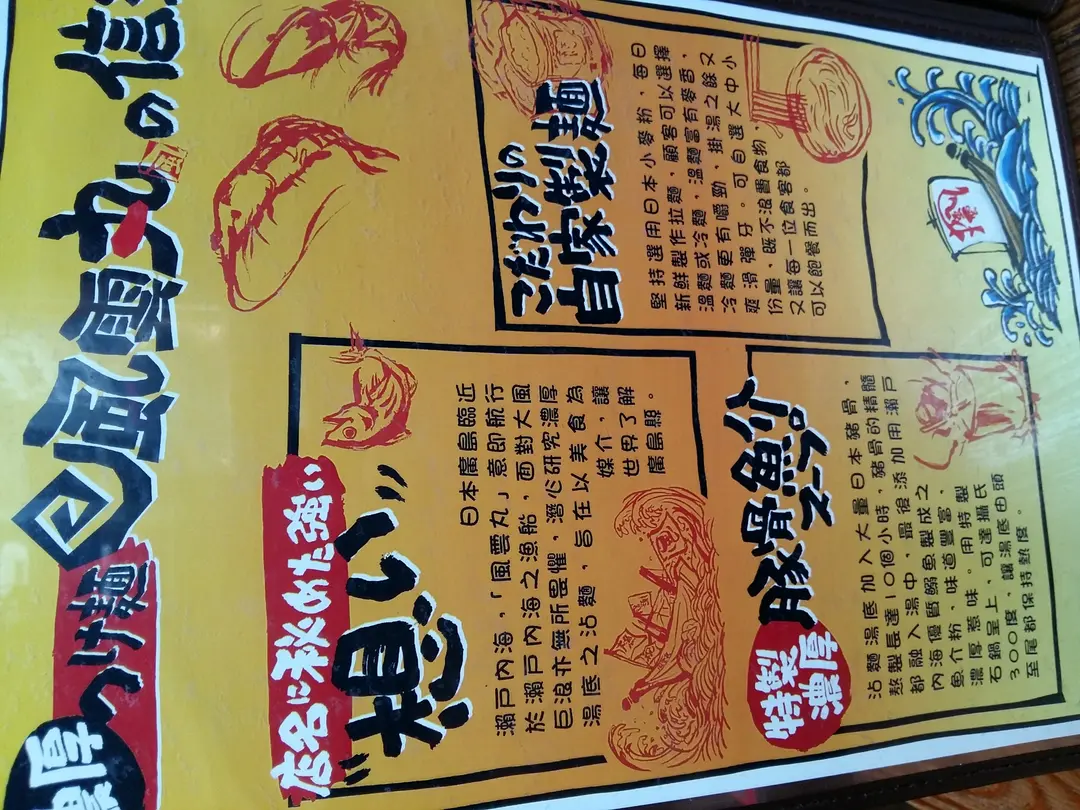 濃厚
つけ麺
風雲丸の信
店名に秘めた強い
"想い"
日本廣島臨近
瀨戸內海,「風雲丸」意即航行
於瀨戸內海之漁船,面對大風
巨浪亦無所畏懼,潛心研究濃厚
湯底之沾麵,旨在以美食為
媒介,讓
世界了解
廣島縣。
こだわりの
自家製麺
堅持選用日本小麥粉,每日
新鮮製作拉麵,顧客可以選擇
溫麵或冷麵,溫麵富有麥香,
冷麵更有嚼勁,掛湯之餘又
爽滑彈牙。可自選大中小
份量,既不浪費食物,
又讓每一位食客都
可以飽餐而出。
特製
濃厚
豚骨魚介
スープ
沾麵湯底加入大量日本豬骨,
熬製長達10個小時,豬骨的精髓
都融入湯中,最後添加用瀨戸
內海優質鰯魚製成之
魚介粉,味道豐富,
濃厚惹味。用特製
石鍋呈上,可達攝氏
300度,讓湯底由頭
至尾都保持熱度。